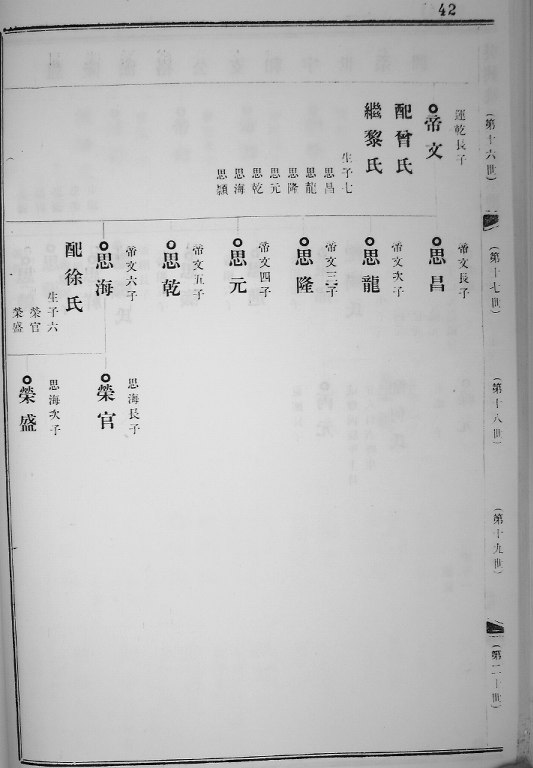 42
(第十六世)
運乾長子
帝文
配曾氏
繼黎氏
生子七
思昌
思龍
思隆
思元
思乾
思海
思顯
(第十七世)
帝文長子
思昌
帝文次子
思龍
帝文三子
思隆
帝文四子
思元
帝文五子
思乾
帝文六子
思海
配徐氏
生子六
榮官
榮盛
(第十八世)
思海長子
榮官
思海次子
榮盛
(第十九世)
(第二十世)